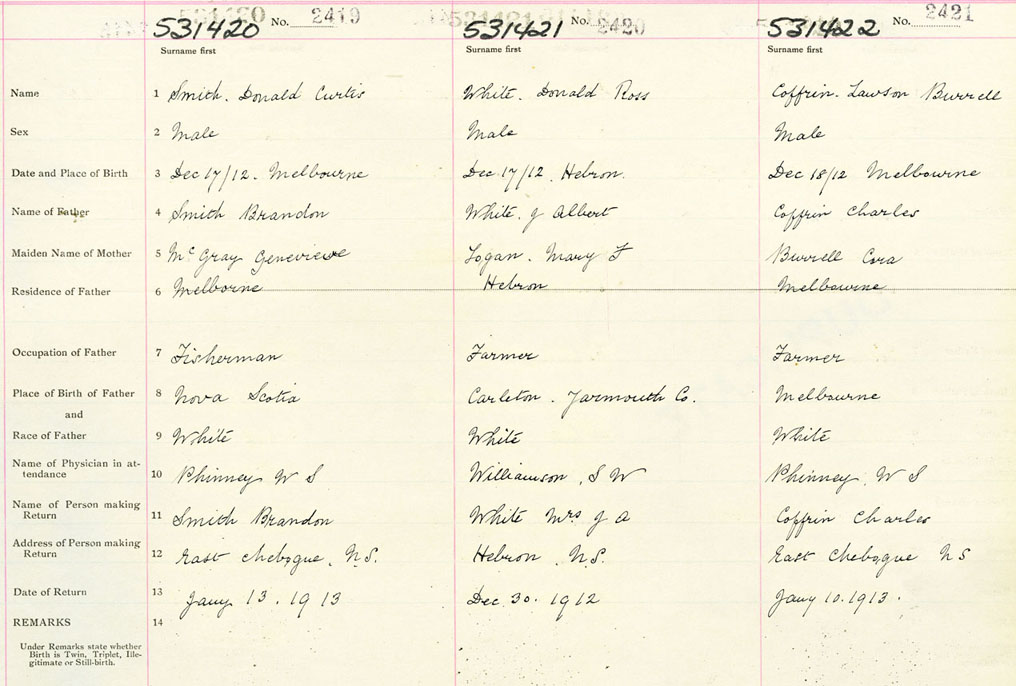 531420 No. 2419 531421 No. 2420 531422 No. 2421
Surname first Surname first Surname first
Name 1 Smith. Donald Curtis White. Donald Ross Coffrin. Lawson Burrell
Sex 2 Male Male Male
Date and Place of Birth 3 Dec 17/12. Melbourne Dec 17/12. Hebron. Dec 18/12 Melbourne
Name of Father 4 Smith Brandon White. J Albert Coffrin Charles
Maiden Name of Mother 5 McGray Genevieve Logan. Mary F Burrell Cora
Residence of Father 6 Melborne Hebron Melbourne
Occupation of Father 7 Fisherman Farmer Farmer
Place of Birth of Father 8 Nova Scotia Carleton. Yarmouth Co. Melbourne
and
Race of Father 9 White White White
Name of Physician in at-
tendance 10 Phinney W S Williamson, S W Phinney, W S
Name of Person making
Return 11 Smith Brandon White Mrs J A Coffrin Charles
Address of Person making
Return 12 East Chebogue, N.S. Hebron, N.S. East Chebogue N S
Date of Return 13 Jany 13. 1913 Dec. 30. 1912 Jany 10. 1913.
REMARKS 14
Under Remarks state whether
Birth is Twin, Triplet, Ille-
gitimate or Still-birth.